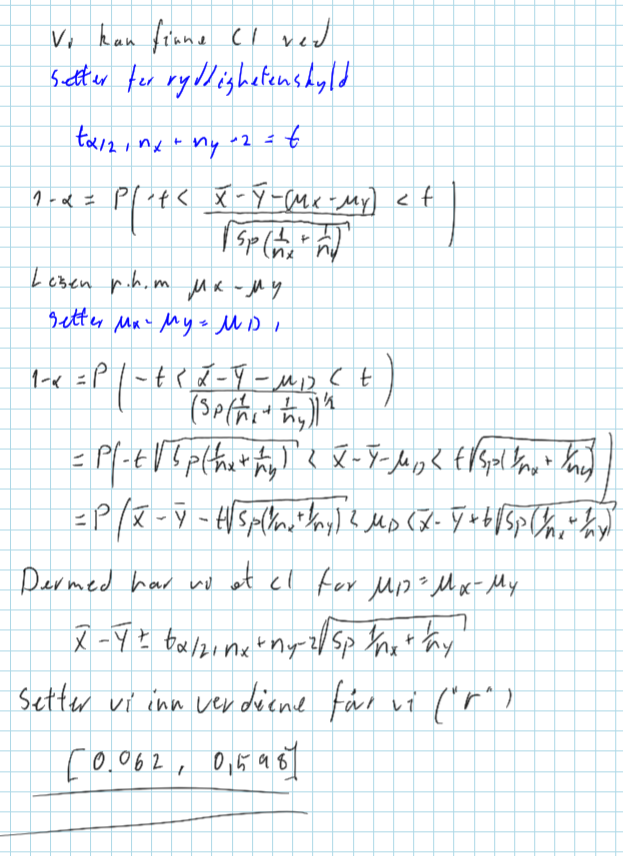 Vi kan finne CI ved
Setter for ryddighetenskyld
t α/2, nx + ny - 2 = t
1-α = P( -t < (X̄ - Ȳ - (μx - μy)) / √(Sp(1/nx + 1/ny)) < t )
Løsen m.h.m μx - μy
Setter μx - μy = μD,
1-α = P( -t < (X̄ - Ȳ - μD) / (Sp(1/nx + 1/ny))^½ < t )
= P( -t √(Sp(1/nx + 1/ny)) < X̄ - Ȳ - μD < t √(Sp(1/nx + 1/ny)) )
= P( X̄ - Ȳ - t√(Sp(1/nx + 1/ny)) < μD < X̄ - Ȳ + t√(Sp(1/nx + 1/ny))
Dermed har vi at CI for μD = μx - μy
X̄ - Ȳ ± t α/2, nx + ny - 2 √(Sp 1/nx + 1/ny)
Setter vi inn verdiene får vi ("r")
[0.062, 0,598]